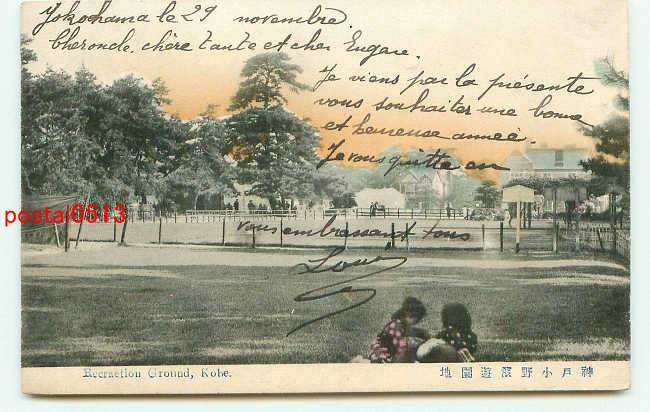 Yokohama le 29 novembre.
chère tante et cher Eugène.
Je viens par la présente
vous souhaiter une bonne
et heureuse année.
Je vous quitte en
vous embrassant tous
Louis
postal0513
Recraetion Ground, Kobe.
地園遊 野小戸神